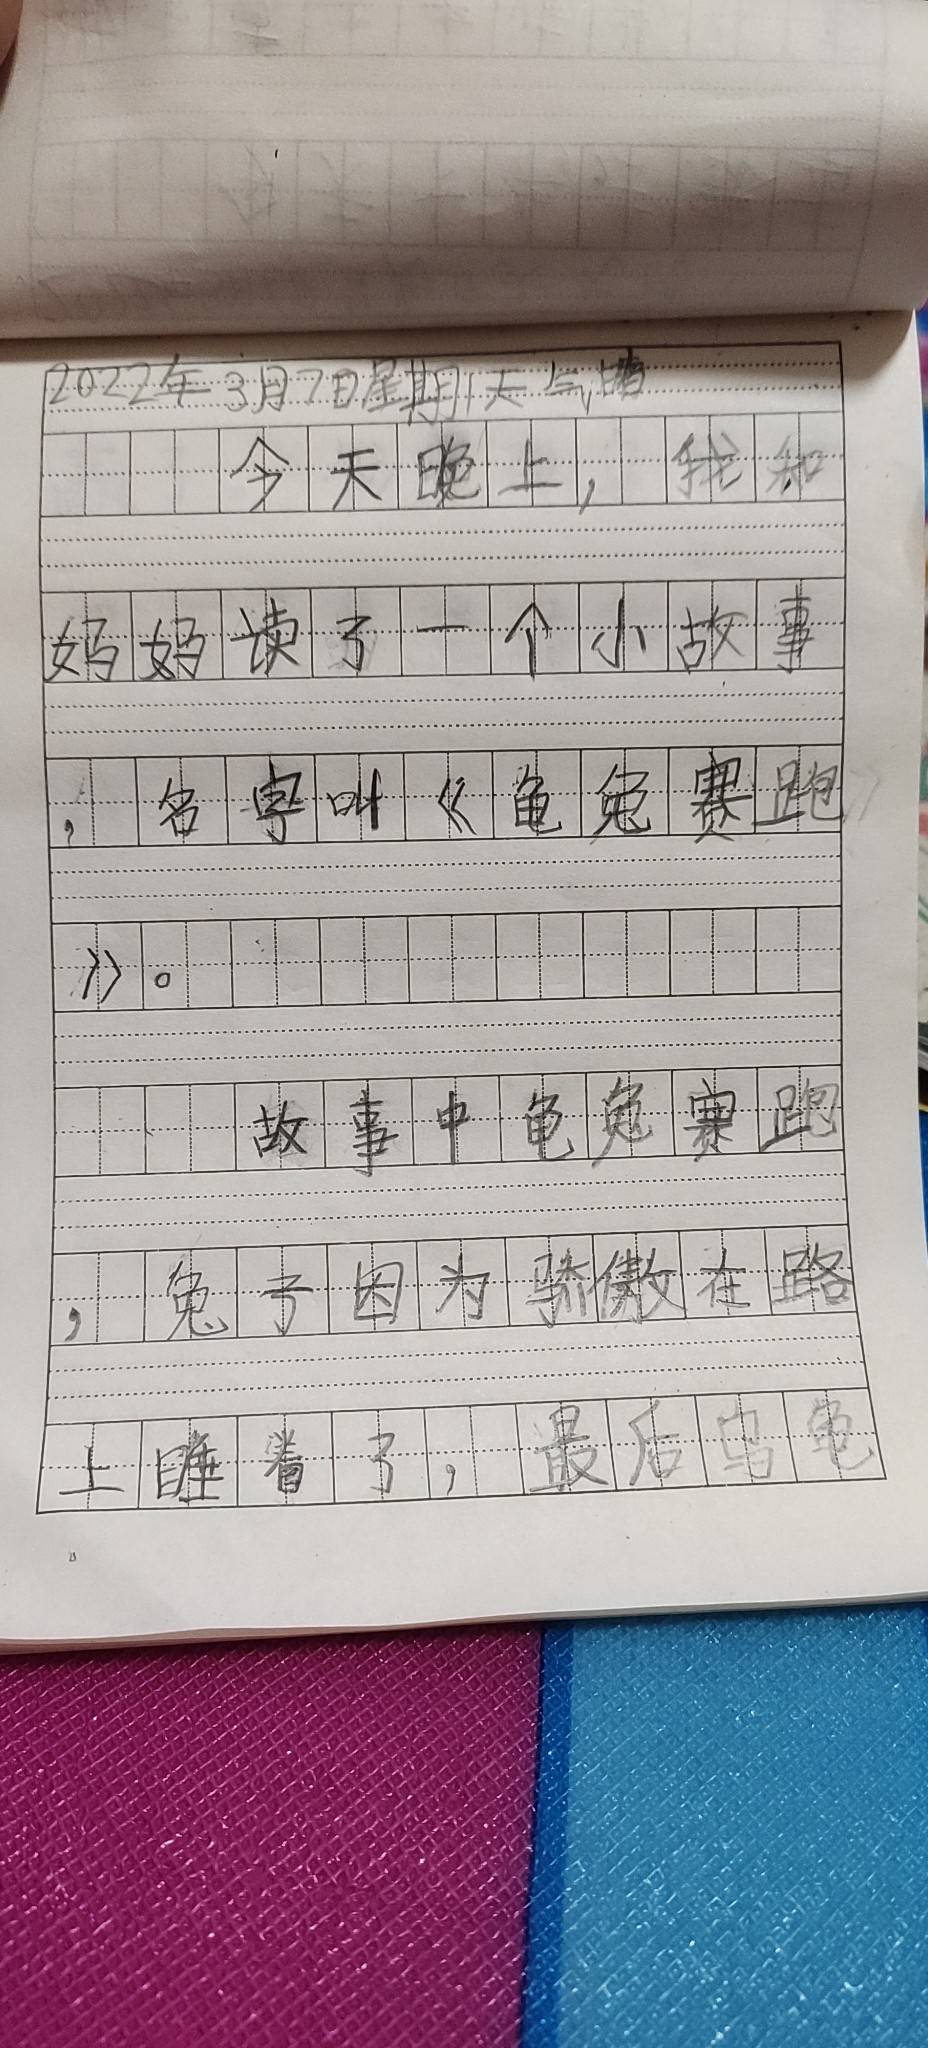 2022年3月7日星期1天气晴
今天晚上，我知
妈妈读了一个小故事
，名字叫《龟兔赛跑
》。
故事中龟兔赛跑
，兔子因为骄傲在路
上睡着了，最后乌龟